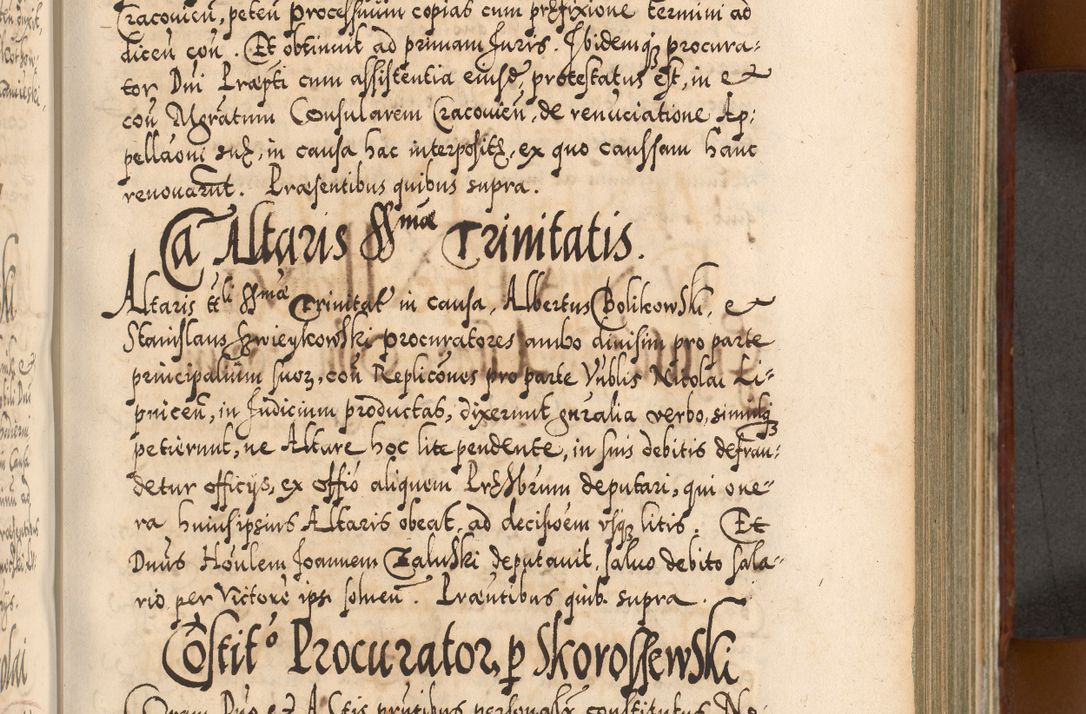 Cracovień, peteń processuum copias cum præfixione termini ad
diceń coń. Et obtinuit ad primam Juris. Ibidemq procura-
tor Dni Præpti cum assistentia eiusd, protestatus est, in et
coń Mgratum Consularem Cracovień, de renunciatione Ap-
pellaoni suæ, in causa hac interpositæ, ex quo caussam hanc
renovarunt. Præsentibus quibus supra.
Ca Altaris SSmæ Trinitatis.
Altaris ttli SSmæ Trinitat in causa, Albertus Bolikowski, et
Stanislaus Zwieykowski procuratores ambo divisim pro parte
principalium suoz, coń Replicones pro parte Vnblis Nicolai Li-
pniceń, in Judicium productas, dixerunt gnralia verbo, similiq
petierunt, ne Altare hoc lite pendente, in suis debitis defrau-
detur officijs, ex offio aliquem Præsbrum deputari, qui one-
ra huiusipsius Altaris obeat, ad decisioem vsq litis. Et
Dnus Houlem Joannem Zaluski deputavit, salvo debito sala-
rio per victore ipsi solueń. Præntibus quib. supra.
Costito Procurator, p Skorossewski
Coram Dno et Actis pntibus personalr constitutus No-